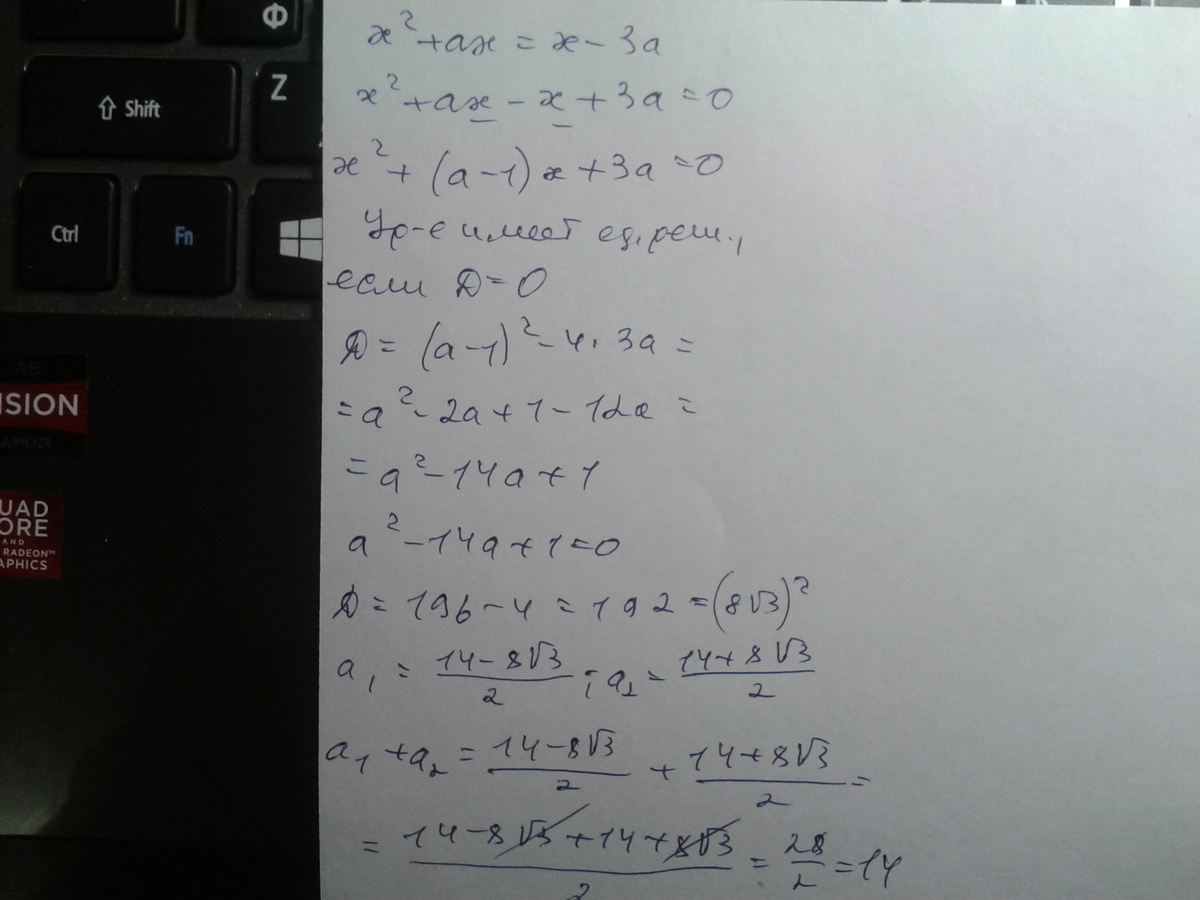 Ф
Shift
Z
Ctrl
Fn
A8
ISION
AMD
UAD
ORE
AND
RADEON™
APHICS
x²+ax = x-3a
x²+ax-x+3a=0
x²+(a-1)x+3a=0
Ур-е имеет ед. реш.,
если D=0
D = (a-1)²-4·3a =
=a²-2a+1-12a =
=a²-14a+1
a²-14a+1=0
D = 196-4 = 192 =(8√3)²
a₁ = (14-8√3)/2 ; a₂ = (14+8√3)/2
a₁+a₂ = (14-8√3)/2 + (14+8√3)/2 =
= (14-8√3+14+8√3)/2 = 28/2 = 14